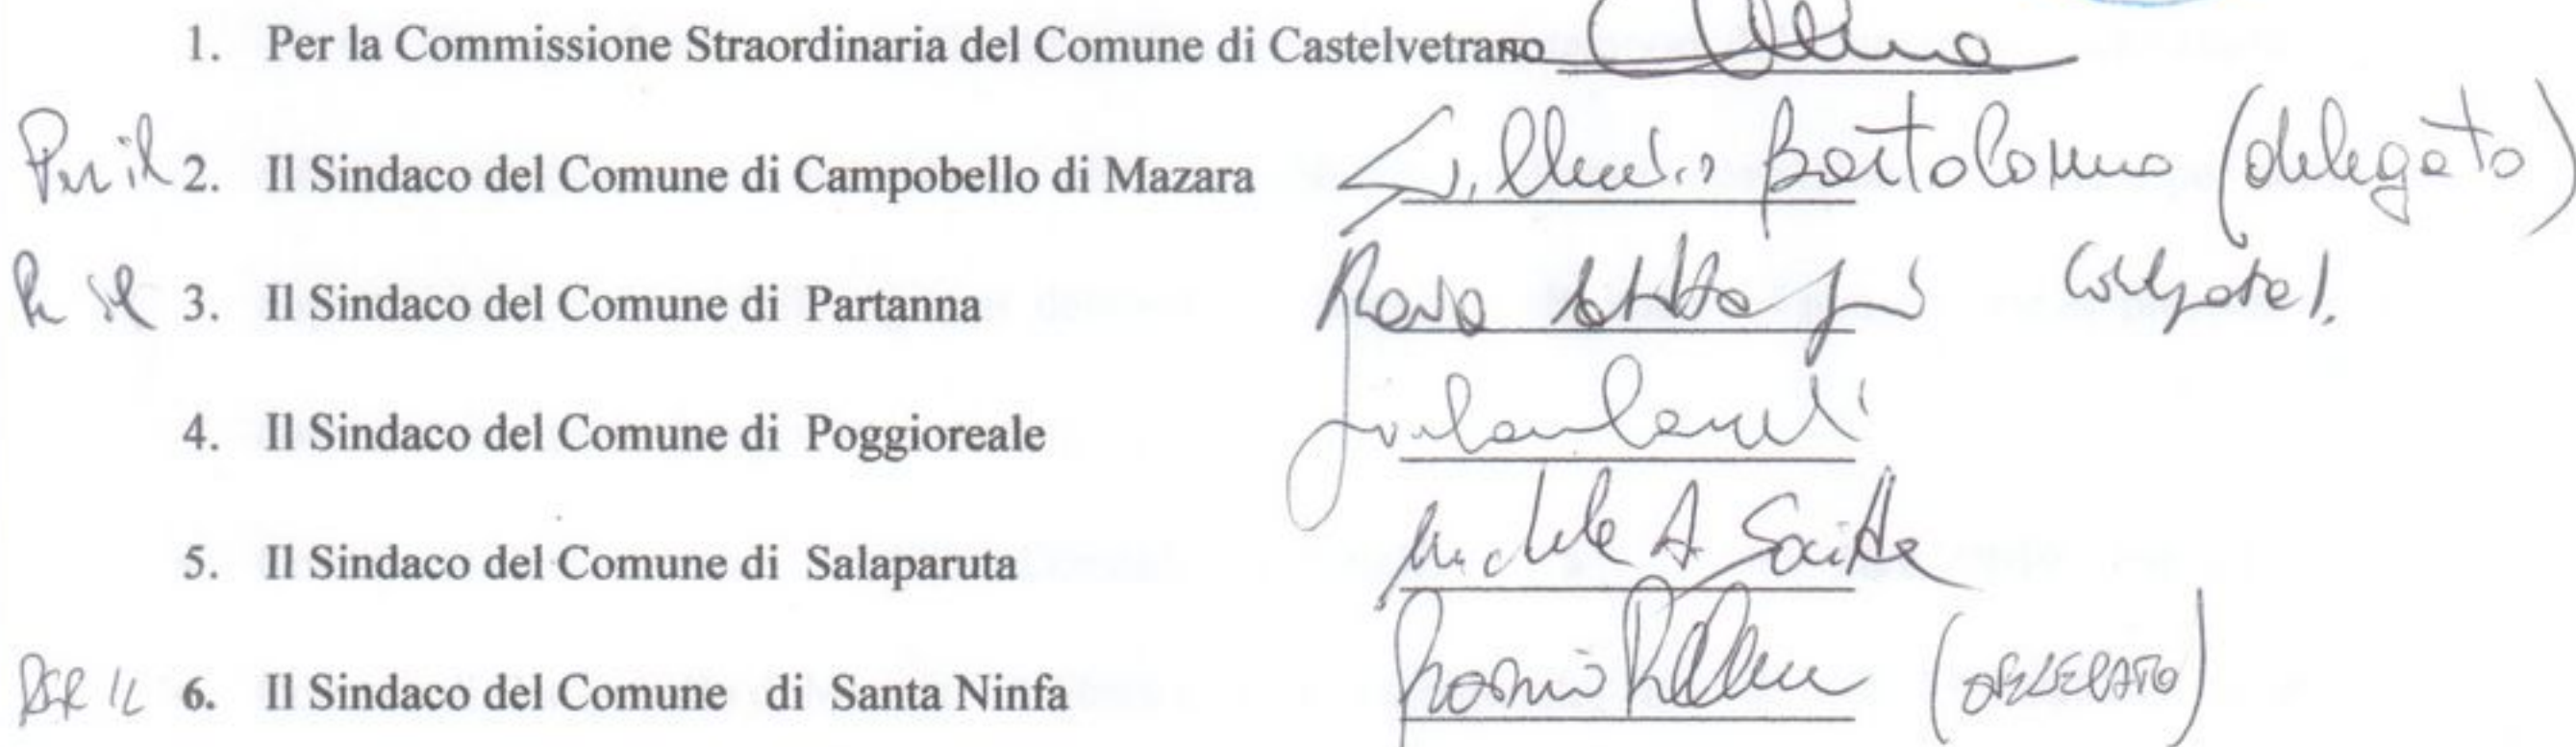 1. Per la Commissione Straordinaria del Comune di Castelvetrano
Per il 2. Il Sindaco del Comune di Campobello di Mazara Bartolomeo (delegato)
Per il 3. Il Sindaco del Comune di Partanna
4. Il Sindaco del Comune di Poggioreale
5. Il Sindaco del Comune di Salaparuta Michele A. Saitta
PER IL 6. Il Sindaco del Comune di Santa Ninfa (DELEGATO)